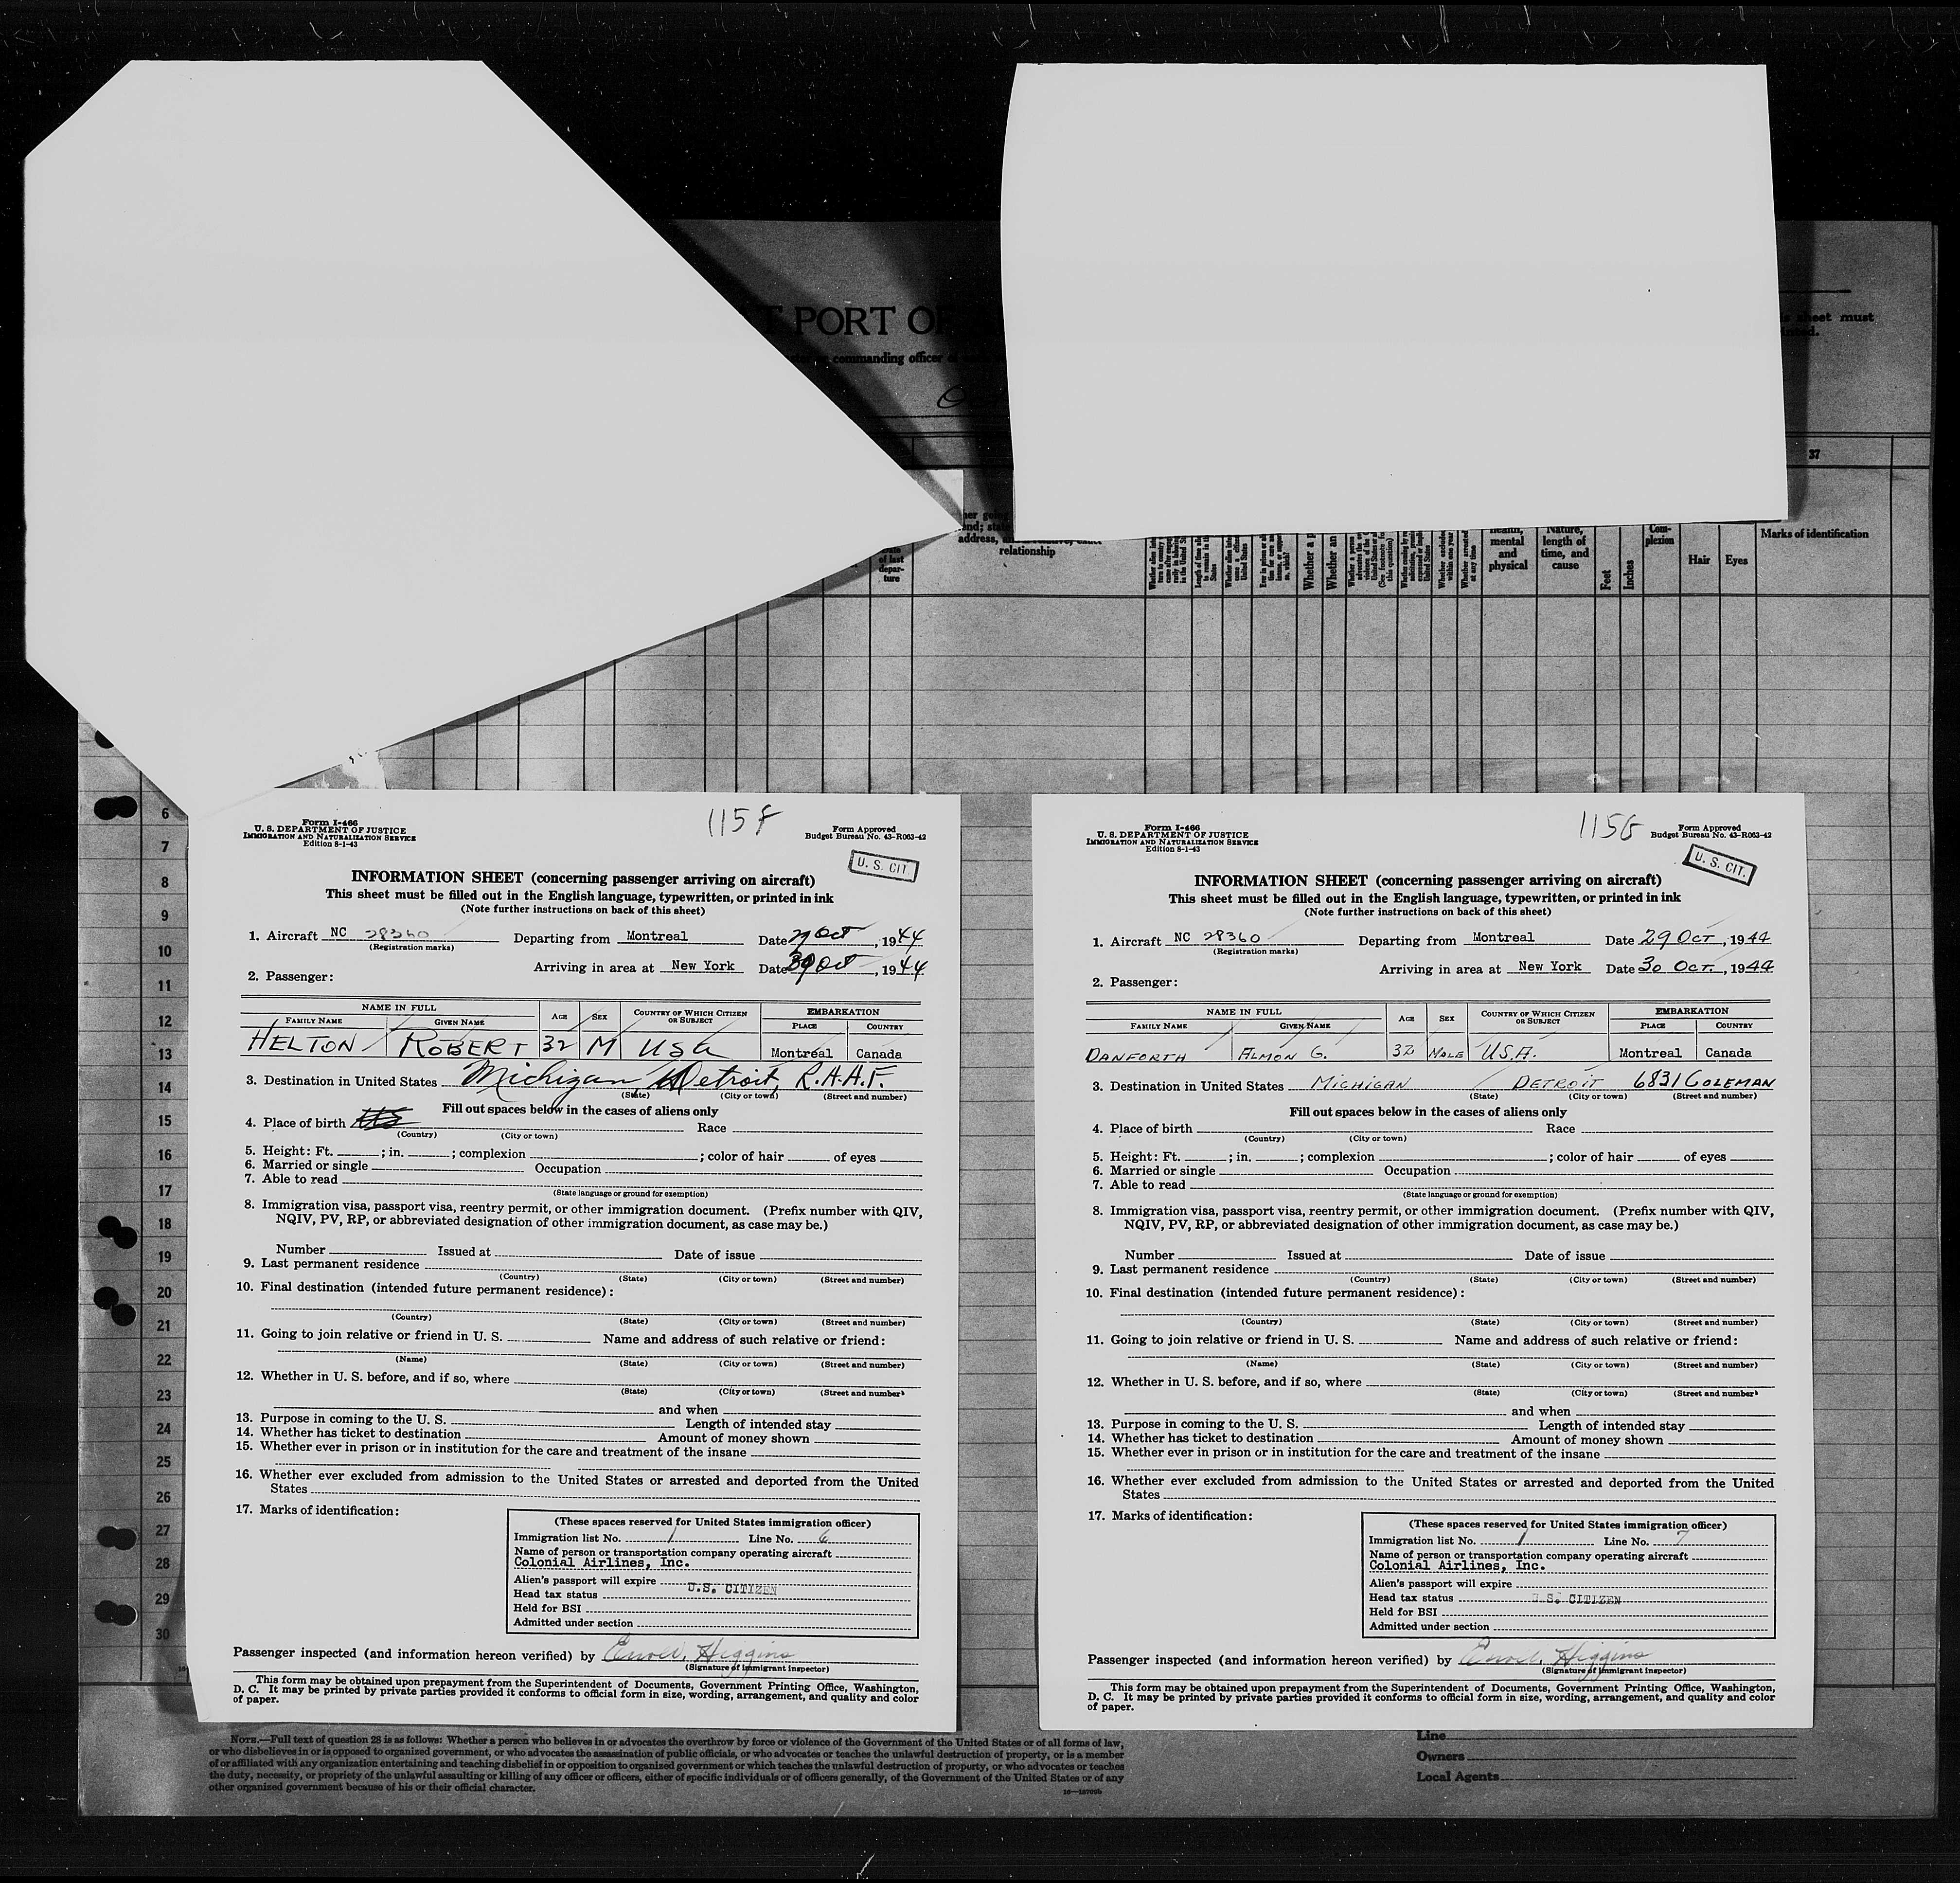 PORT OF
commanding officer
sheet must
37
relationship
Date of last departure
Whether a p
Whether an
mental and physical
Nature, length of time, and cause
Feet
Inches
Complexion
Hair
Eyes
Marks of identification
6
7
8
9
10
11
12
13
14
15
16
17
18
19
20
21
22
23
24
25
26
27
28
29
30
115F
Form I-466
U. S. DEPARTMENT OF JUSTICE
IMMIGRATION AND NATURALIZATION SERVICE
Edition 8-1-43
Form Approved
Budget Bureau No. 43-R063-42
U. S. CIT.
INFORMATION SHEET (concerning passenger arriving on aircraft)
This sheet must be filled out in the English language, typewritten, or printed in ink
(Note further instructions on back of this sheet)
1. Aircraft NC 28360 Departing from Montreal Date 29 Oct, 1944
(Registration marks)
Arriving in area at New York Date 30 Oct, 1944
2. Passenger:
NAME IN FULL AGE SEX COUNTRY OF WHICH CITIZEN OR SUBJECT EMBARKATION
FAMILY NAME GIVEN NAME PLACE COUNTRY
HELTON ROBERT 32 M USA Montreal Canada
3. Destination in United States Michigan, Detroit, R.A.A.F.
(State) (City or town) (Street and number)
Fill out spaces below in the cases of aliens only
4. Place of birth Race
(Country) (City or town)
5. Height: Ft. ; in. ; complexion ; color of hair of eyes
6. Married or single Occupation
7. Able to read
(State language or ground for exemption)
8. Immigration visa, passport visa, reentry permit, or other immigration document. (Prefix number with QIV,
NQIV, PV, RP, or abbreviated designation of other immigration document, as case may be.)
Number Issued at Date of issue
9. Last permanent residence
(Country) (State) (City or town) (Street and number)
10. Final destination (intended future permanent residence):
(Country) (State) (City or town) (Street and number)
11. Going to join relative or friend in U. S. Name and address of such relative or friend:
(Name) (State) (City or town) (Street and number)
12. Whether in U. S. before, and if so, where
(State) (City or town) (Street and number)
and when
13. Purpose in coming to the U. S. Length of intended stay
14. Whether has ticket to destination Amount of money shown
15. Whether ever in prison or in institution for the care and treatment of the insane
16. Whether ever excluded from admission to the United States or arrested and deported from the United
States
17. Marks of identification:
(These spaces reserved for United States immigration officer)
Immigration list No. 1 Line No. 6
Name of person or transportation company operating aircraft
Colonial Airlines, Inc.
Alien's passport will expire
Head tax status U.S. CITIZEN
Held for BSI
Admitted under section
Passenger inspected (and information hereon verified) by Higgins
(Signature of immigrant inspector)
This form may be obtained upon prepayment from the Superintendent of Documents, Government Printing Office, Washington,
D. C. It may be printed by private parties provided it conforms to official form in size, wording, arrangement, and quality and color
of paper.
115G
Form I-466
U. S. DEPARTMENT OF JUSTICE
IMMIGRATION AND NATURALIZATION SERVICE
Edition 8-1-43
Form Approved
Budget Bureau No. 43-R063-42
U. S. CIT.
INFORMATION SHEET (concerning passenger arriving on aircraft)
This sheet must be filled out in the English language, typewritten, or printed in ink
(Note further instructions on back of this sheet)
1. Aircraft NC 28360 Departing from Montreal Date 29 Oct, 1944
(Registration marks)
Arriving in area at New York Date 30 Oct., 1944
2. Passenger:
NAME IN FULL AGE SEX COUNTRY OF WHICH CITIZEN OR SUBJECT EMBARKATION
FAMILY NAME GIVEN NAME PLACE COUNTRY
DANFORTH ALMON G. 32 MALE U.S.A. Montreal Canada
3. Destination in United States MICHIGAN DETROIT 6831 COLEMAN
(State) (City or town) (Street and number)
Fill out spaces below in the cases of aliens only
4. Place of birth Race
(Country) (City or town)
5. Height: Ft. ; in. ; complexion ; color of hair of eyes
6. Married or single Occupation
7. Able to read
(State language or ground for exemption)
8. Immigration visa, passport visa, reentry permit, or other immigration document. (Prefix number with QIV,
NQIV, PV, RP, or abbreviated designation of other immigration document, as case may be.)
Number Issued at Date of issue
9. Last permanent residence
(Country) (State) (City or town) (Street and number)
10. Final destination (intended future permanent residence):
(Country) (State) (City or town) (Street and number)
11. Going to join relative or friend in U. S. Name and address of such relative or friend:
(Name) (State) (City or town) (Street and number)
12. Whether in U. S. before, and if so, where
(State) (City or town) (Street and number)
and when
13. Purpose in coming to the U. S. Length of intended stay
14. Whether has ticket to destination Amount of money shown
15. Whether ever in prison or in institution for the care and treatment of the insane
16. Whether ever excluded from admission to the United States or arrested and deported from the United
States
17. Marks of identification:
(These spaces reserved for United States immigration officer)
Immigration list No. 1 Line No. 7
Name of person or transportation company operating aircraft
Colonial Airlines, Inc.
Alien's passport will expire
Head tax status U.S. CITIZEN
Held for BSI
Admitted under section
Passenger inspected (and information hereon verified) by Higgins
(Signature of immigrant inspector)
This form may be obtained upon prepayment from the Superintendent of Documents, Government Printing Office, Washington,
D. C. It may be printed by private parties provided it conforms to official form in size, wording, arrangement, and quality and color
of paper.
NOTE.—Full text of question 28 is as follows: Whether a person who believes in or advocates the overthrow by force or violence of the Government of the United States or of all forms of law,
or who disbelieves in or is opposed to organized government, or who advocates the assassination of public officials, or who advocates or teaches the unlawful destruction of property, or is a member
of or affiliated with any organization entertaining and teaching disbelief in or opposition to organized government or which teaches the unlawful destruction of property, or who advocates or teaches
the duty, necessity, or propriety of the unlawful assaulting or killing of any officer or officers, either of specific individuals or of officers generally, of the Government of the United States or of any
other organized government because of his or their official character.
Line
Owners
Local Agents